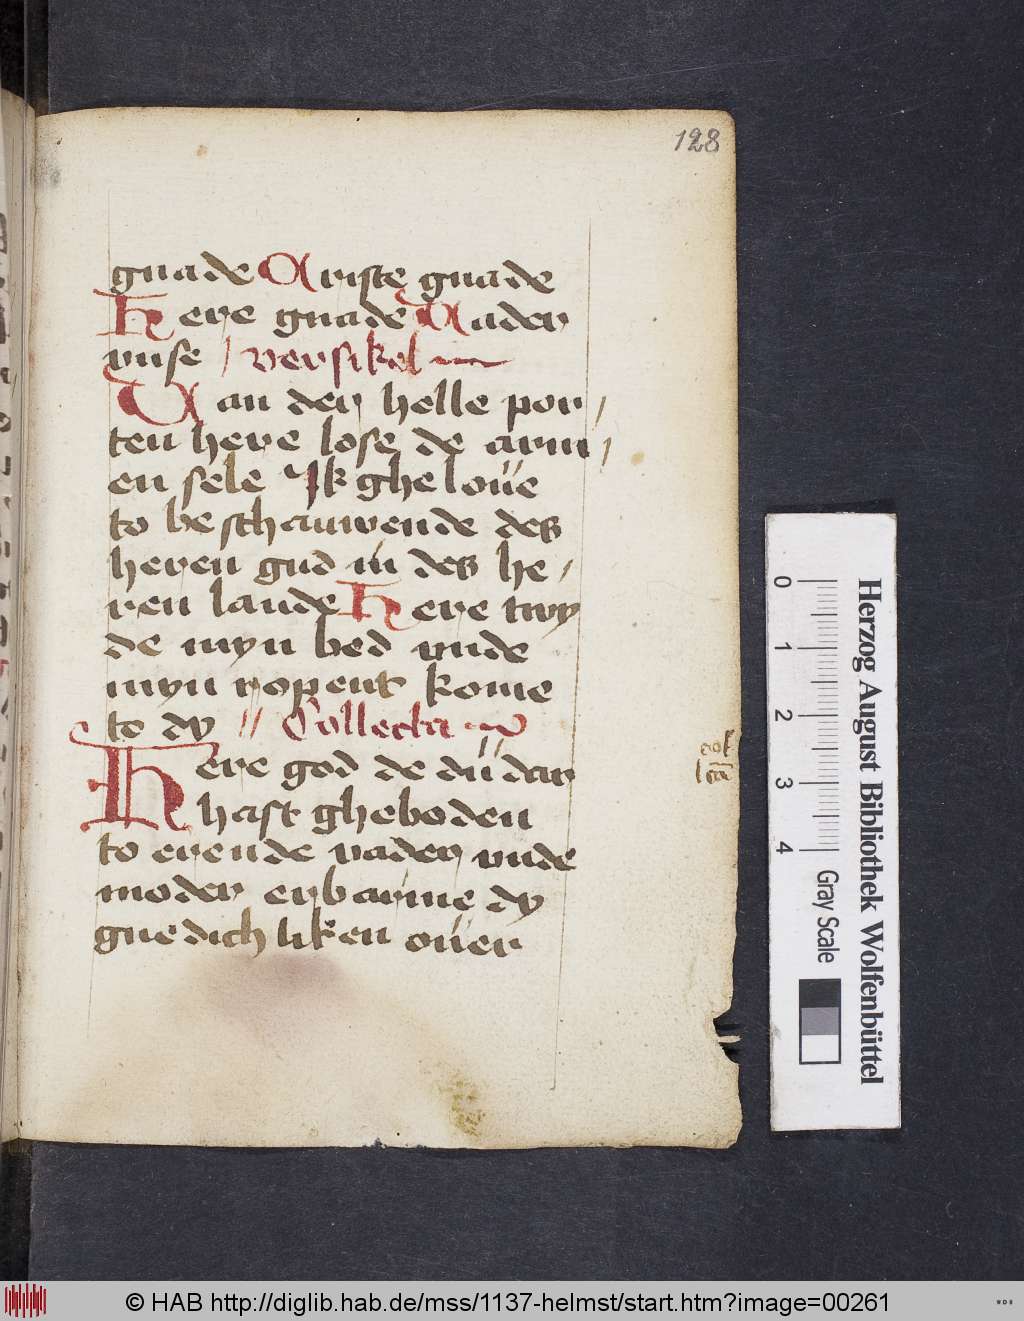 128
gnade Criste gnade
Here gnade Vader
vnse versikel
Van der helle por
ten here lose de arm
en sele Ik gheloüe
to beschauwende des
heren gud in des he
ren lande Here twy
de myn bed vnde
myn ropent kome
to dy Collecta
Here god de dü dar
hast gheboden
to erende vader vnde
moder erbarme dy
gnedichliken oüer
Herzog August Bibliothek Wolfenbüttel
0 1 2 3 4
Gray Scale
© HAB http://diglib.hab.de/mss/1137-helmst/start.htm?image=00261